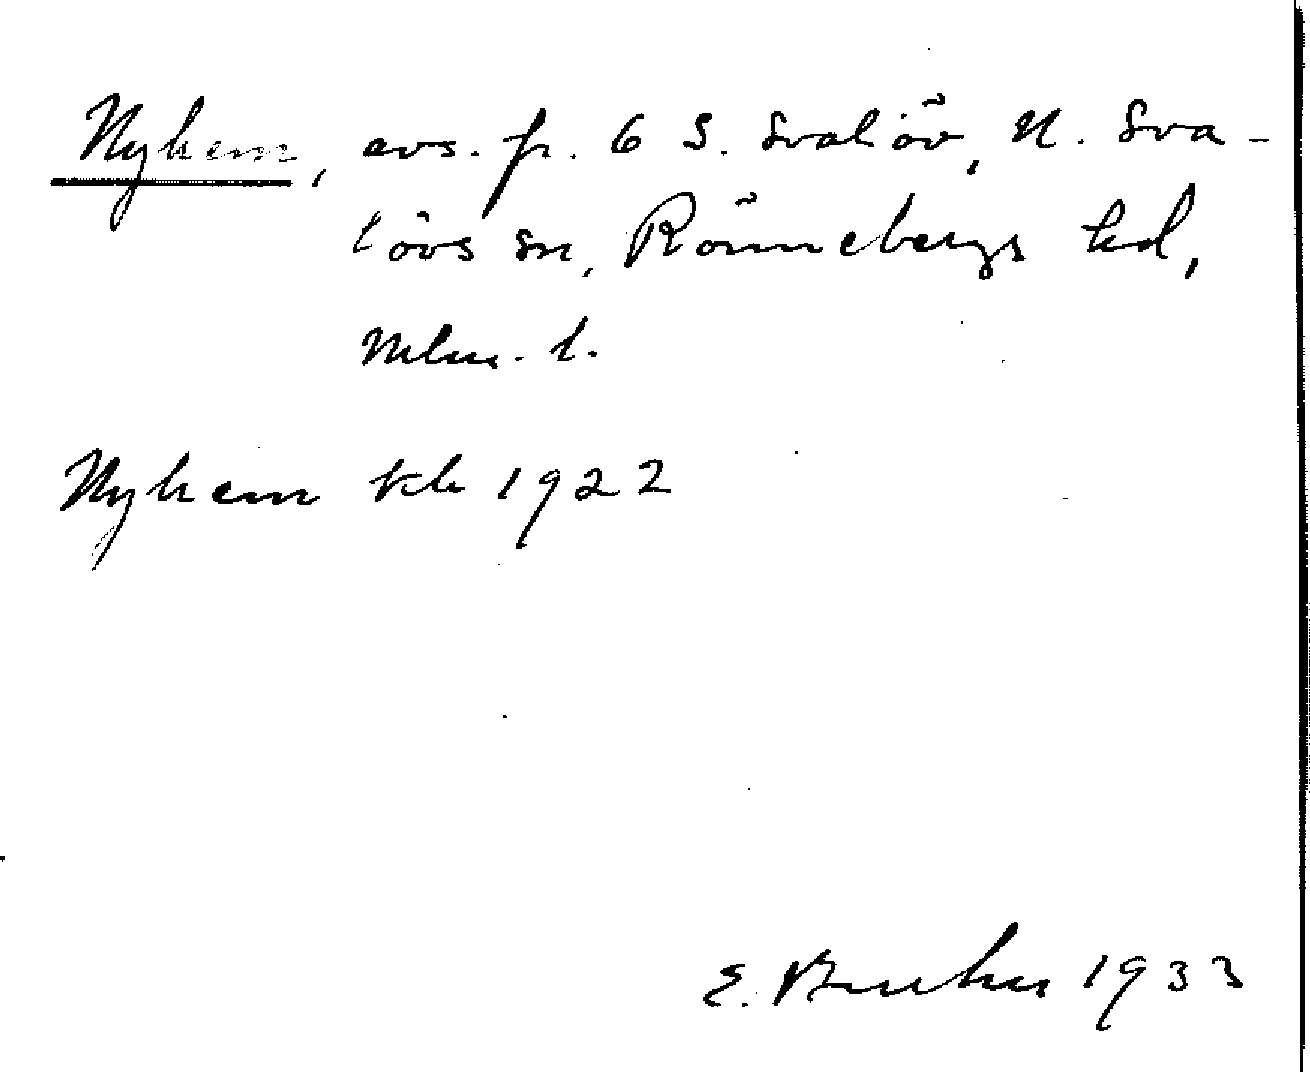 Nyhem, avs. fr. 6 S. Svalöv, N. Sva-
lövs sn, Rönnebergs hd,
Mlm. l.
Nyhem kb 1922
E. 1933